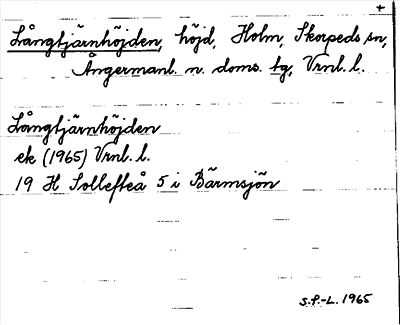 +
Långtjärnhöjden, höjd, Holm, Skorpeds sn,
Ångermanl. n. doms. tg, Vrnl. l.
Långtjärnhöjden
ek (1965) Vrnl. l.
19 H Sollefteå 5 i Bärmsjön
S.P.-L. 1965